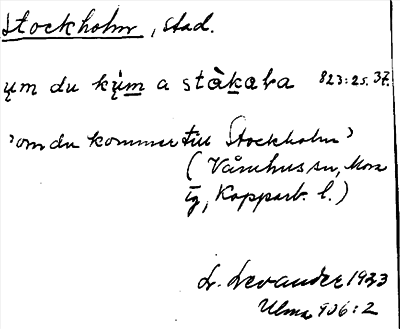 Stockholm, stad.
um du kum a stàkaba 823:25.37.
"om du kommer till Stockholm"
(Våmhus sn, Mora
tg, Kopparb. l.)
L. Levander 1933
Ulma 936:2